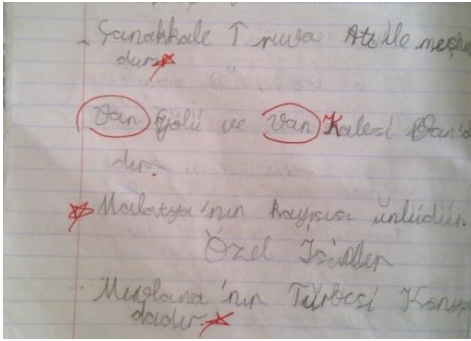 Çanakkale Truva Atı ile meşhu
dur.
Van Gölü ve Van Kalesi Van'd
dır.
Malatya'nın kayısısı ünlüdür.
Özel İsimler
Mevlana'nın Türbesi Konya
dadır.